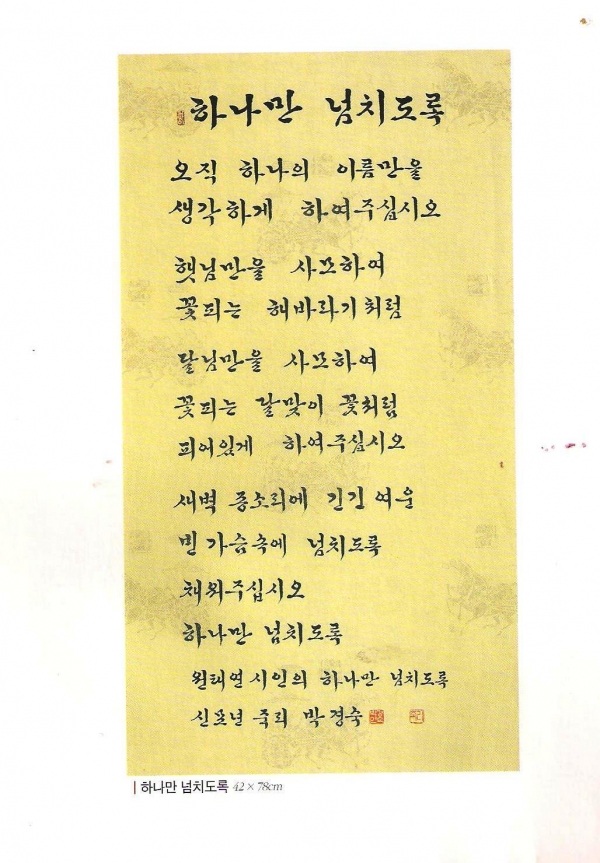 하나만 넘치도록
오직 하나의 이름만을
생각하게 하여주십시오
햇님만을 사모하여
꽃피는 해바라기처럼
달님만을 사모하여
꽃피는 달맞이 꽃처럼
피어있게 하여주십시오
새벽 종소리에 긴긴 여운
빈 가슴속에 넘치도록
채워주십시오
하나만 넘치도록
원태연시인의 하나만 넘치도록
신묘년 죽리 박경숙
하나만 넘치도록 42×78cm